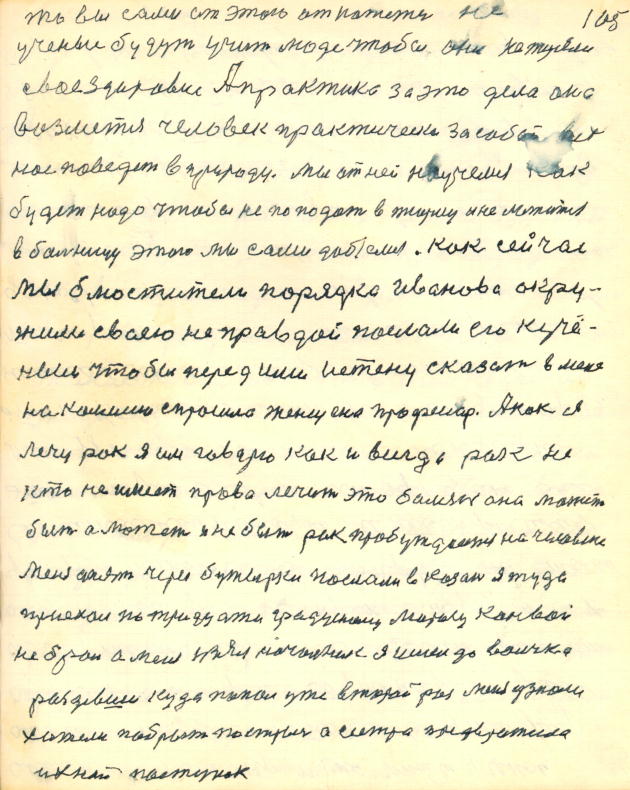 то вы сами от этого откажетя не 105
ученые будут учит люде чтобы они
свое здоровие А практика за это дела она
возметя человек практически за собой
нас поведет в природу. мы от ней научемя как
будет надо чтобы не поподат в тюрму и не ложится
в болницу этого мы сами добемя. как сейчас
мы блюстители порядка Иванова окру-
жили своею не правдой послали его к учё-
ным чтобы перед ими истену сказат в мене
на комисию спросила женщена професор. А как я
лечу рак я им говарю как и всегда рак не
кто не имеет права лечит это болезн она может
быт а может и не быт рак пробуждается на человеке
меня опят через бутырки послали в козан я туда
приехал по тридцати градусному морозу Конвой
не брал а меня взял начолник я ишол до вочка
раздевши куда попал уже второй раз меня узнали
хотели побрыт постреч а сестра предвратила
ихний поступок